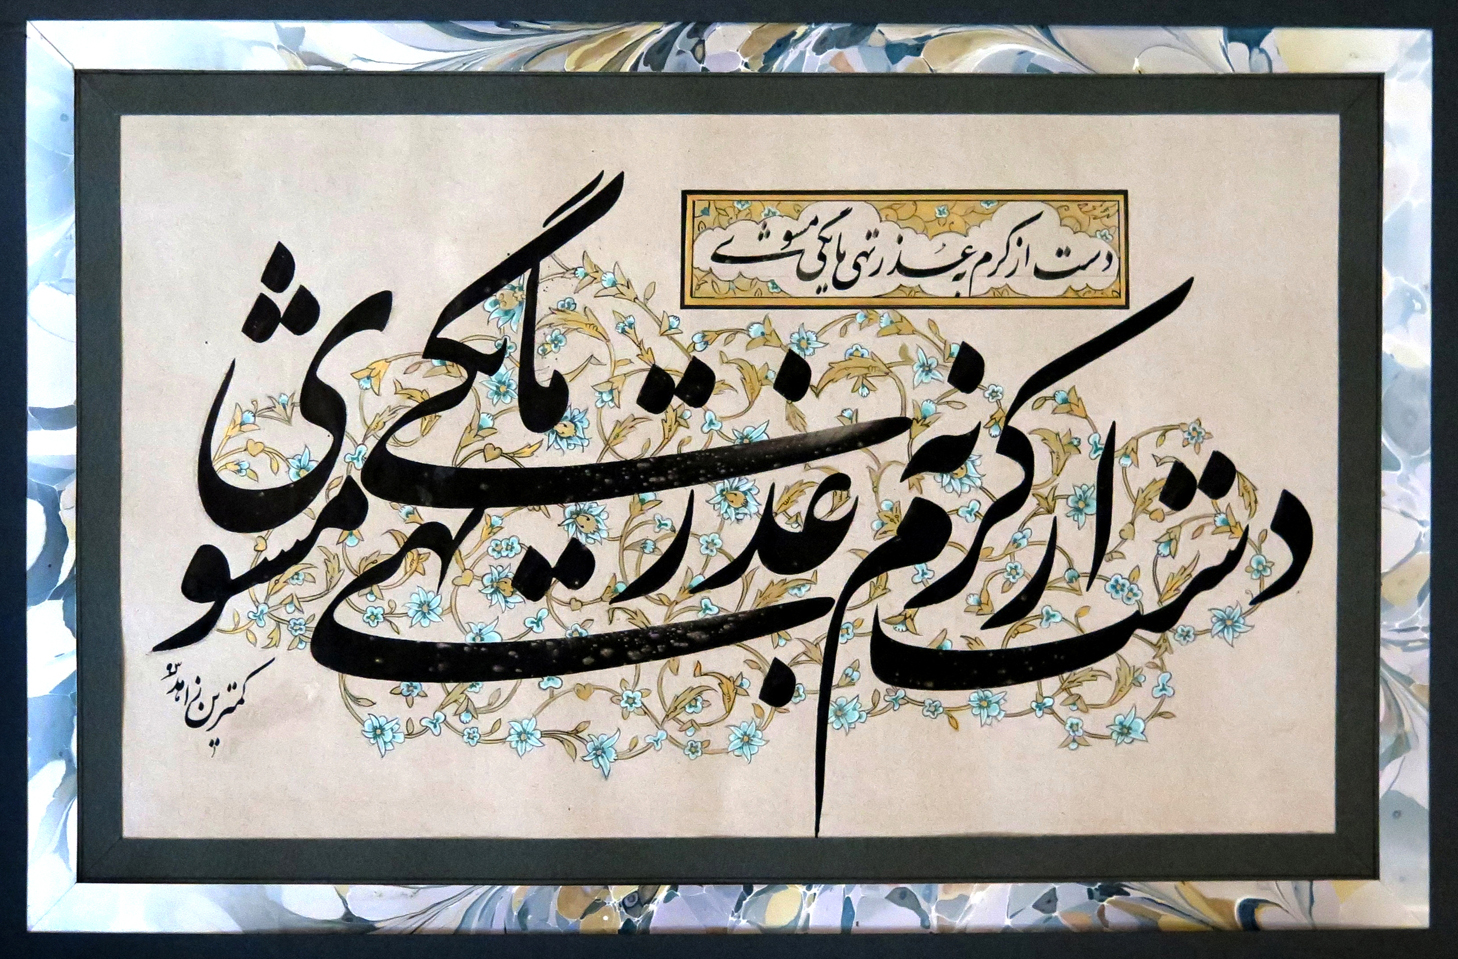 دست از کرم به عذر تهی مایگی مشوی
دست از کرم به عذر تهی مایگی مشوی
کمترین زاهد ۹۳